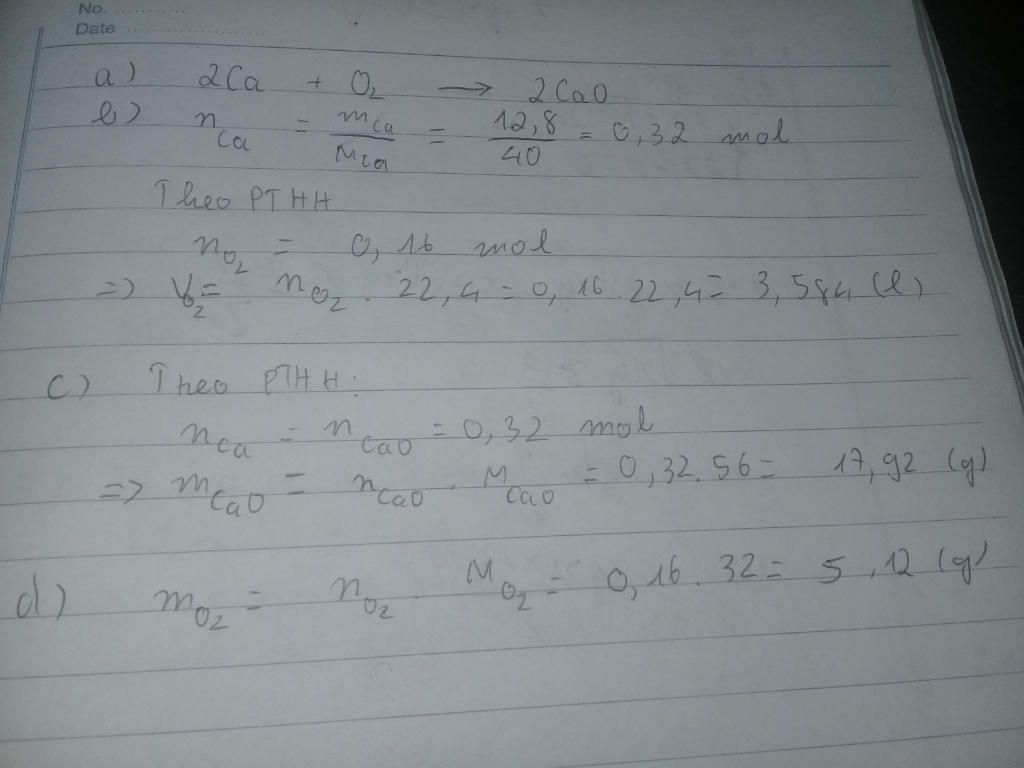 No. ...........
Date .......................
a) 2Ca + O₂ → 2CaO
b) n_Ca = m_Ca/M_Ca = 12,8/40 = 0,32 mol
Theo PTHH
n_O₂ = 0,16 mol
=> V_O₂ = n_O₂ . 22,4 = 0,16 . 22,4 = 3,584 (l)
c) Theo PTHH:
n_Ca = n_CaO = 0,32 mol
=> m_CaO = n_CaO . M_CaO = 0,32.56 = 17,92 (g)
d) m_O₂ = n_O₂ . M_O₂ = 0,16 . 32 = 5,12 (g)